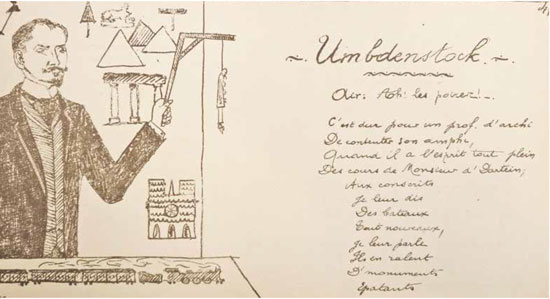 Umbdenstock.
Air: Ah! les poires!
C'est dur pour un prof. d'archi
De contenter son amphi,
Quand il a l'esprit tout plein
Des cours de Monsieur d'Dartein;
Aux conscrits
Je leur dis
Des bateaux
Tout nouveaux,
Je leur parle
Ils en ralent
D'monuments
Epatants